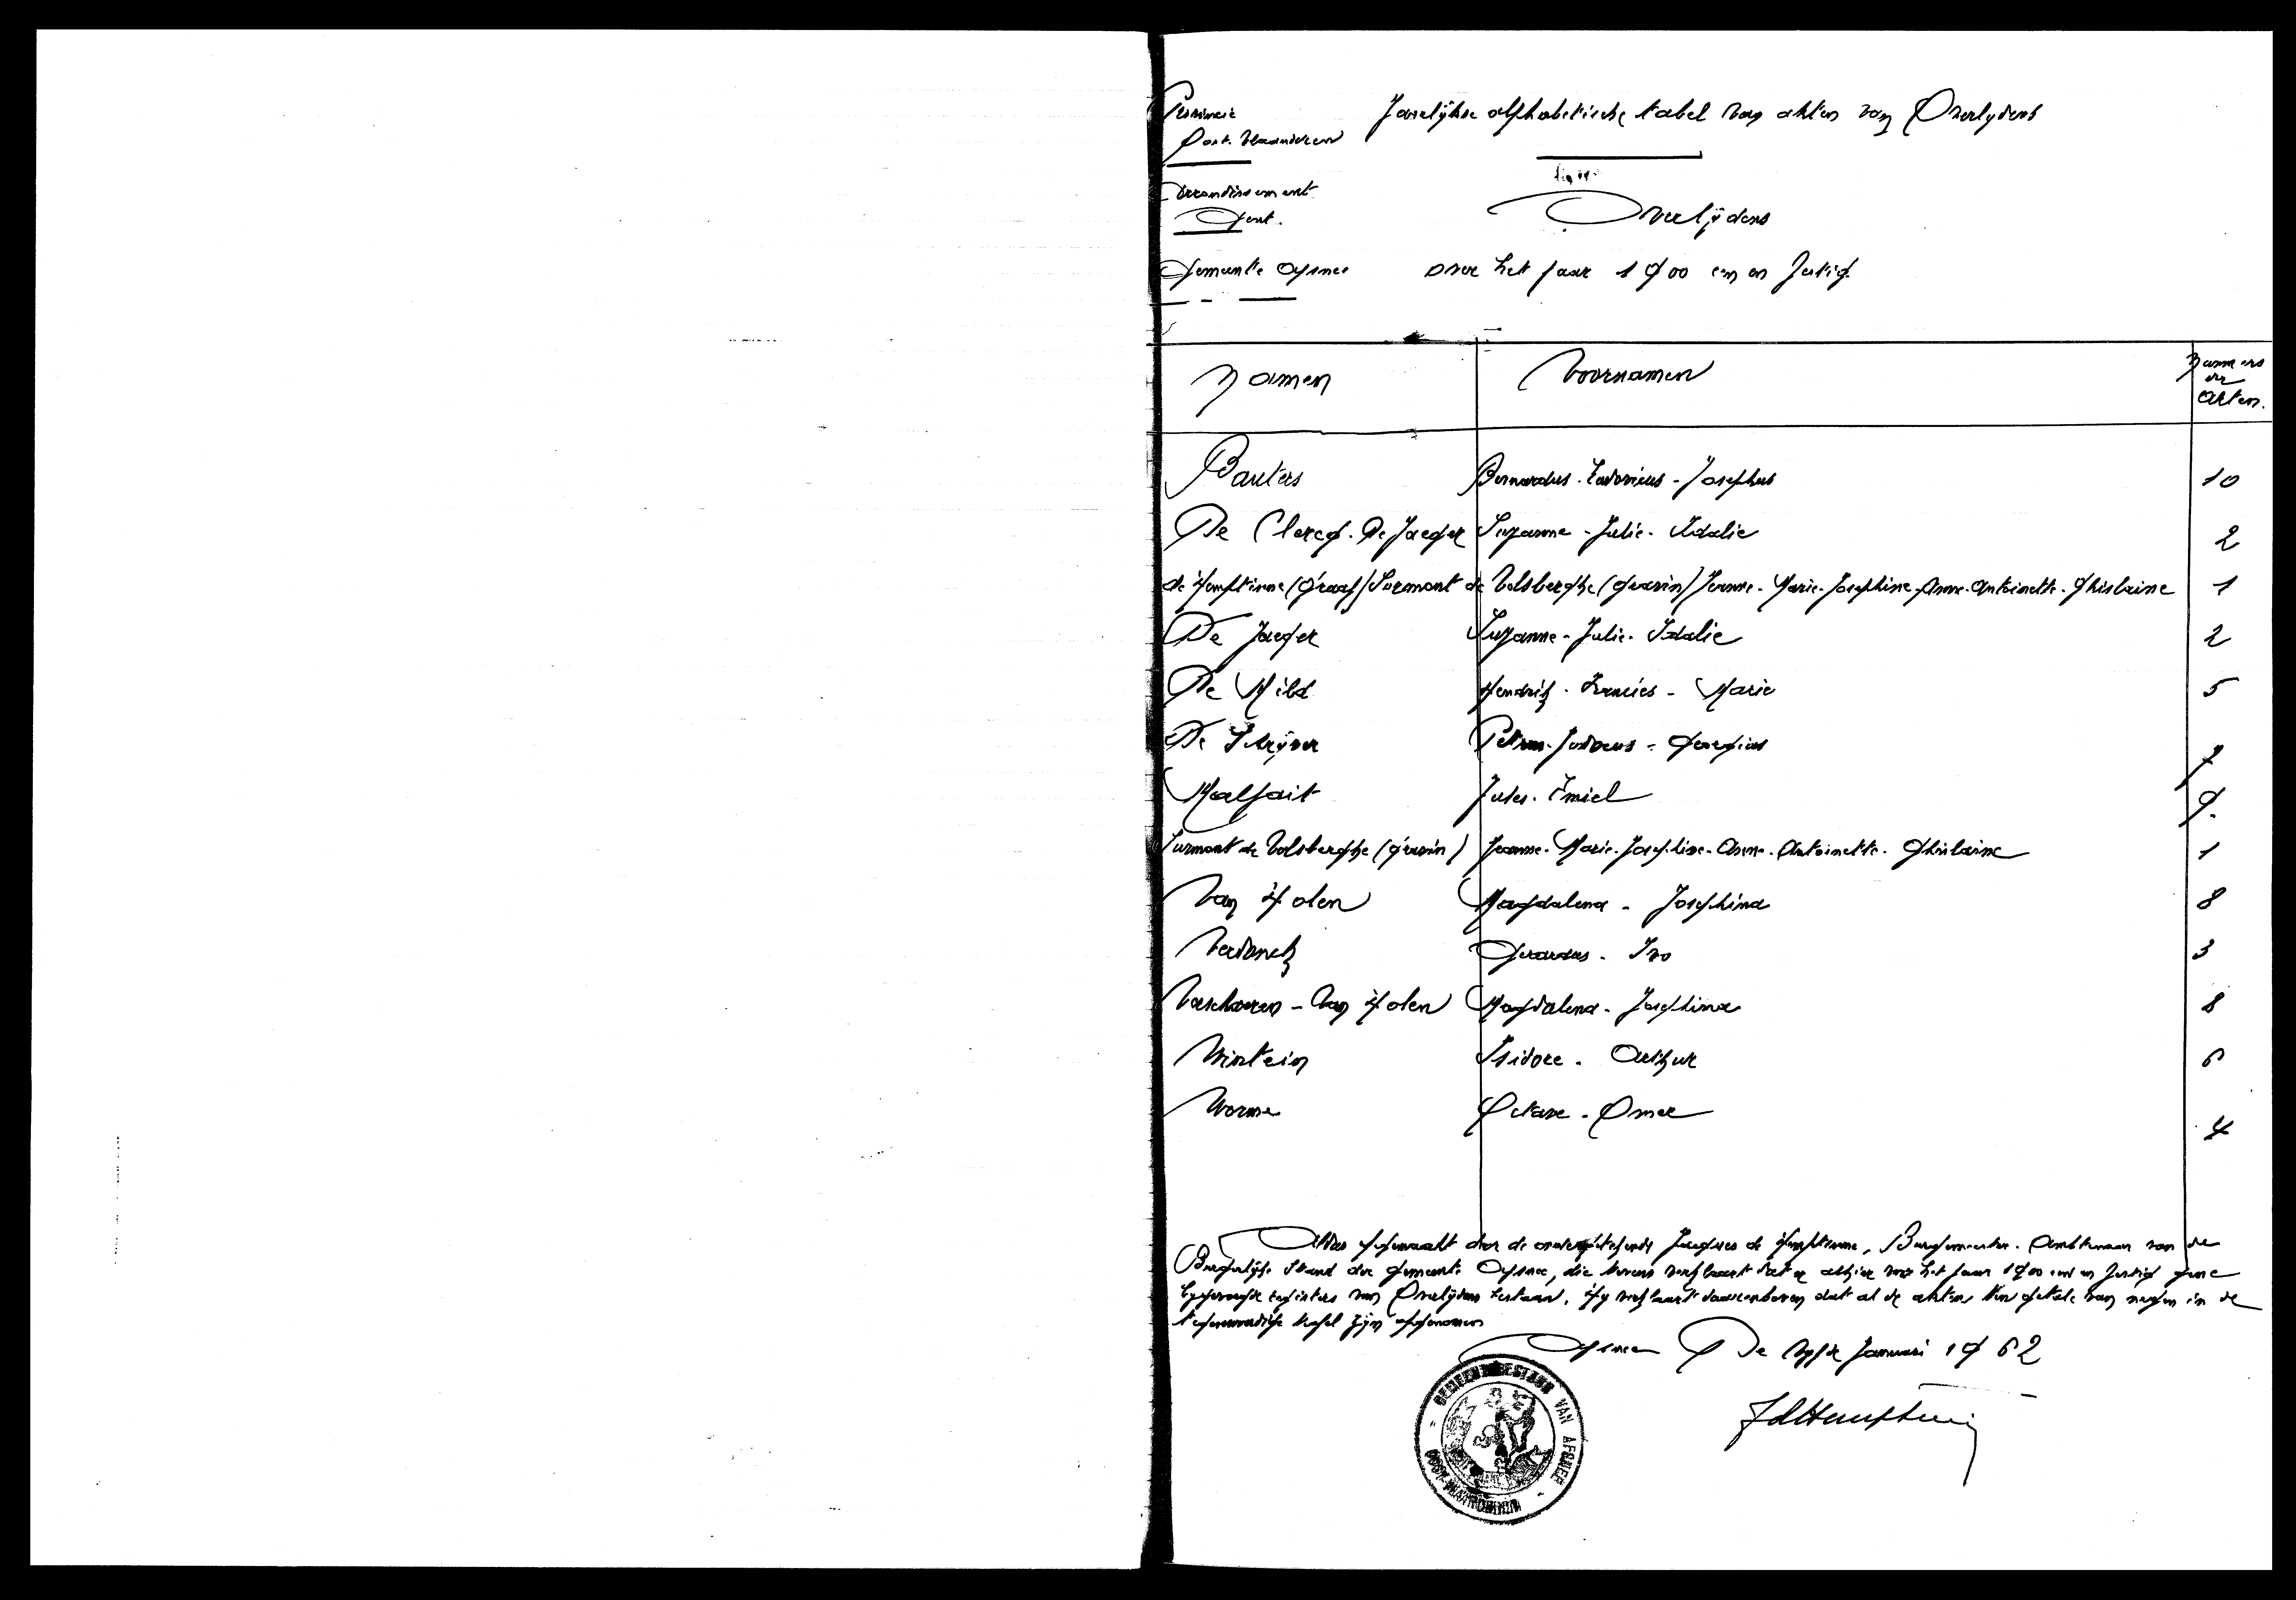 Provincie
Oost. Vlaanderen
Jaarlijkse alphabetische tabel van akten van Overlydens
Arrondissement
Gent.
Overlijdens
Gemeente Afsnee
over het jaar 1900 een en
Namen
Voornamen
Nummers
der
akten.
Bauters Bernardus - Ludovicus - Josephus 10
De Clercq. De Jaeger Suzanne - Julie - Idalie 2
de Hemptinne (Graaf) Surmont de Volsberghe (gravin) Jeanne - Marie - Josephine - Anne - Antoinette - Ghislaine 1
De Jaeger Suzanne - Julie - Idalie 2
De Mild Hendrik - Francies - Marie 5
De Schrijver Petrus - Judocus - 7
Malfait Jules - Emiel 9.
Surmont de Volsberghe (gravin) Jeanne - Marie - Josephine - Anne - Antoinette - Ghislaine 1
Van Holen Magdalena - Josephina 8
Verdonck Gerardus - Ivo 3
Verschaeren - Van Holen Magdalena - Josephina 8
Wintein Isidore - Arthur 6
Worme Octave - Omer 4
Aldus opgemaakt door de ondergetekende Jacques de Hemptinne, Burgemeester. Ambtenaar van de
Burgerlijke Stand der gemeente Afsnee, die tevens verklaart dat er alhier voor het jaar 1900 een en gene
bygevoegde registers van Overlijden bestaan. Hy verklaart daarenboven dat al de akten ten getale van negen in de
tegenwoordige tafel zijn opgenomen
Afsnee De vyfde Januari 1962
GEMEENTEBESTUUR VAN AFSNEE
OOST-VLAANDEREN
JdHemptinne